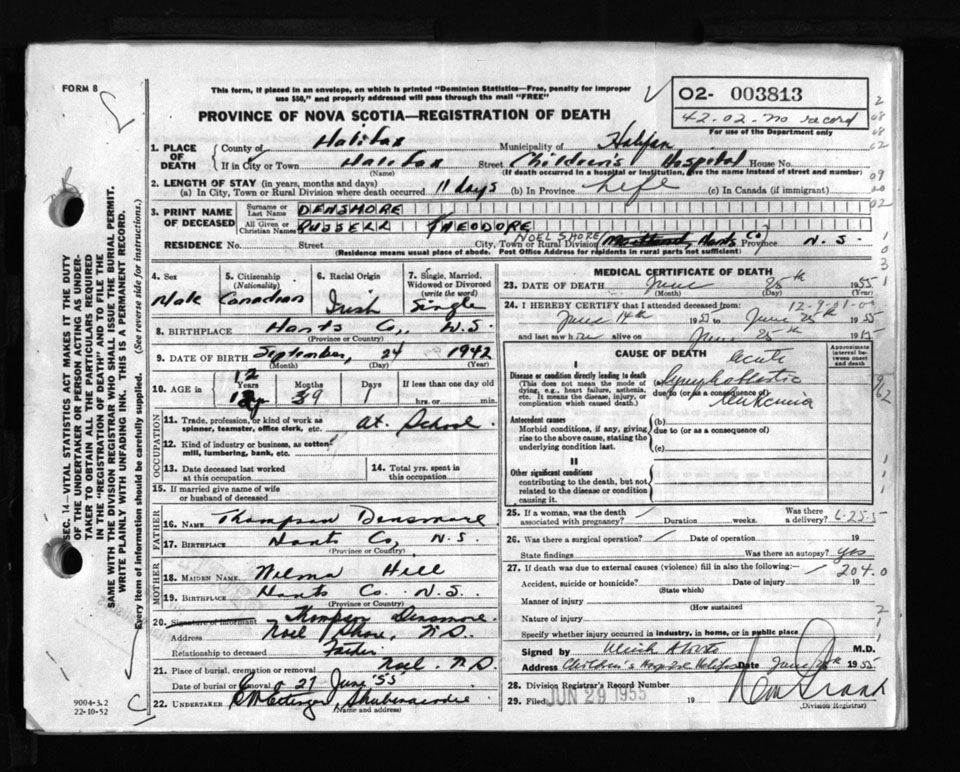 FORM 8
This form, if placed in an envelope, on which is printed "Dominion Statistics—Free, penalty for improper
use $50," and properly addressed will pass through the mail "FREE"
PROVINCE OF NOVA SCOTIA—REGISTRATION OF DEATH
O2- 003813
42-02-no record
For use of the Department only
1. PLACE OF DEATH
County of Halifax Municipality of Halifax
If in City or Town Halifax Street Children's Hospital House No.
(Name) (If death occurred in a hospital or institution, give the name instead of street and number)
2. LENGTH OF STAY (in years, months and days)
(a) In City, Town or Rural Division where death occurred 11 days (b) In Province Life (c) In Canada (if immigrant)
3. PRINT NAME OF DECEASED
Surname or Last Name DENSMORE
All Given or Christian Names RUSSELL THEODORE
NOEL SHORE
RESIDENCE No. Street City, Town or Rural Division Hants Co Province N.S.
(Residence means usual place of abode. Post Office Address for residents in rural parts not sufficient)
4. Sex Male
5. Citizenship (Nationality) Canadian
6. Racial Origin Irish
7. Single, Married, Widowed or Divorced (write the word) Single
8. BIRTHPLACE Hants Co., N.S.
(Province or Country)
9. DATE OF BIRTH September, 24 1942
(Month) (Day) (Year)
10. AGE in 12 Years Months 9 Days 1 If less than one day old
hrs. or min.
OCCUPATION
11. Trade, profession, or kind of work as spinner, teamster, office clerk, etc. at School
12. Kind of industry or business, as cotton mill, lumbering, bank, etc.
13. Date deceased last worked at this occupation
14. Total yrs. spent in this occupation
15. If married give name of wife or husband of deceased
FATHER
16. NAME Thompson Densmore
17. BIRTHPLACE Hants Co., N.S.
(Province or Country)
MOTHER
18. MAIDEN NAME Wilma Hill
19. BIRTHPLACE Hants Co. N.S.
(Province or Country)
20. Signature of informant Thompson Densmore
Address Noel Shore, N.S.
Relationship to deceased Father
21. Place of burial, cremation or removal Noel N.S.
Date of burial or removal 27 June '55
22. UNDERTAKER Shubenacadie
(Name and address)
MEDICAL CERTIFICATE OF DEATH
23. DATE OF DEATH June 25th 1955
(Month) (Day) (Year)
24. I HEREBY CERTIFY that I attended deceased from:
June 14th 1955 to June 25th 1955
and last saw him alive on June 25th 1955
CAUSE OF DEATH
Approximate interval between onset and death
I
Disease or condition directly leading to death
(This does not mean the mode of dying, e.g., heart failure, asthenia, etc. It means the disease, injury, or complication which caused death.)
acute
(a) lymphoblastic
due to (or as a consequence of) leukemia
Antecedent causes
Morbid conditions, if any, giving rise to the above cause, stating the underlying condition last.
(b)
due to (or as a consequence of)
(c)
II
Other significant conditions
contributing to the death, but not related to the disease or condition causing it.
25. If a woman, was the death associated with pregnancy? Duration weeks. Was there a delivery? 6-25-5
26. Was there a surgical operation? Date of operation 19
State findings Was there an autopsy? yes
27. If death was due to external causes (violence) fill in also the following:— 204.0
Accident, suicide or homicide? Date of injury 19
(State which)
Manner of injury
(How sustained
Nature of injury
Specify whether injury occurred in industry, in home, or in public place
Signed by M.D.
Address Children's Hospital Halifax Date June 1955
28. Division Registrar's Record Number
29. Filed JUN 29 1955 19
(Division Registrar)
9004-3.2
22-10-52
SEC. 14—VITAL STATISTICS ACT MAKES IT THE DUTY
OF THE UNDERTAKER OR PERSON ACTING AS UNDER-
TAKER TO OBTAIN ALL THE PARTICULARS REQUIRED
IN THE "REGISTRATION OF DEATH" AND TO FILE THE
SAME WITH THE DIVISION REGISTRAR WHO SHALL ISSUE THE BURIAL PERMIT.
WRITE PLAINLY WITH UNFADING INK. THIS IS A PERMANENT RECORD.
Every item of information should be carefully supplied. (See reverse side for instructions.)